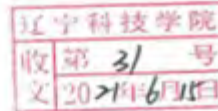 辽宁科技学院
收 第 31 号
文 2021年6月15日